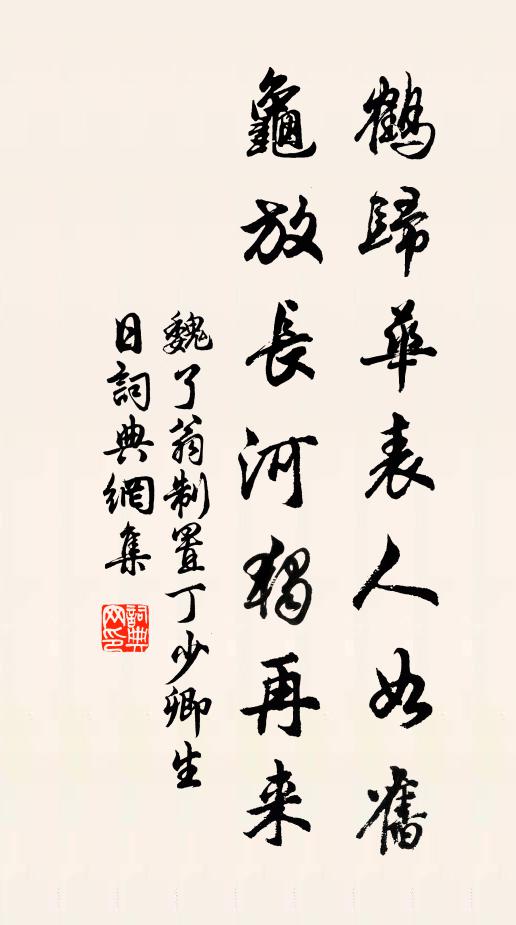 鶴歸華表人如舊
龜放長河獨再来
魏了翁制置丁少卿生
日詞典網集
詞典网印